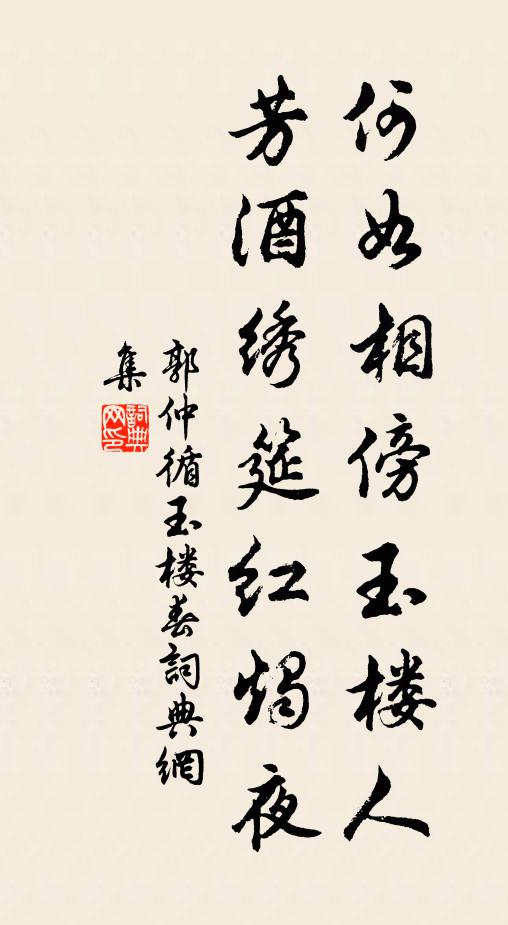 何如相傍玉楼人
芳酒绣筵红烛夜
郭仲循玉楼春詞典網
集
詞典网印